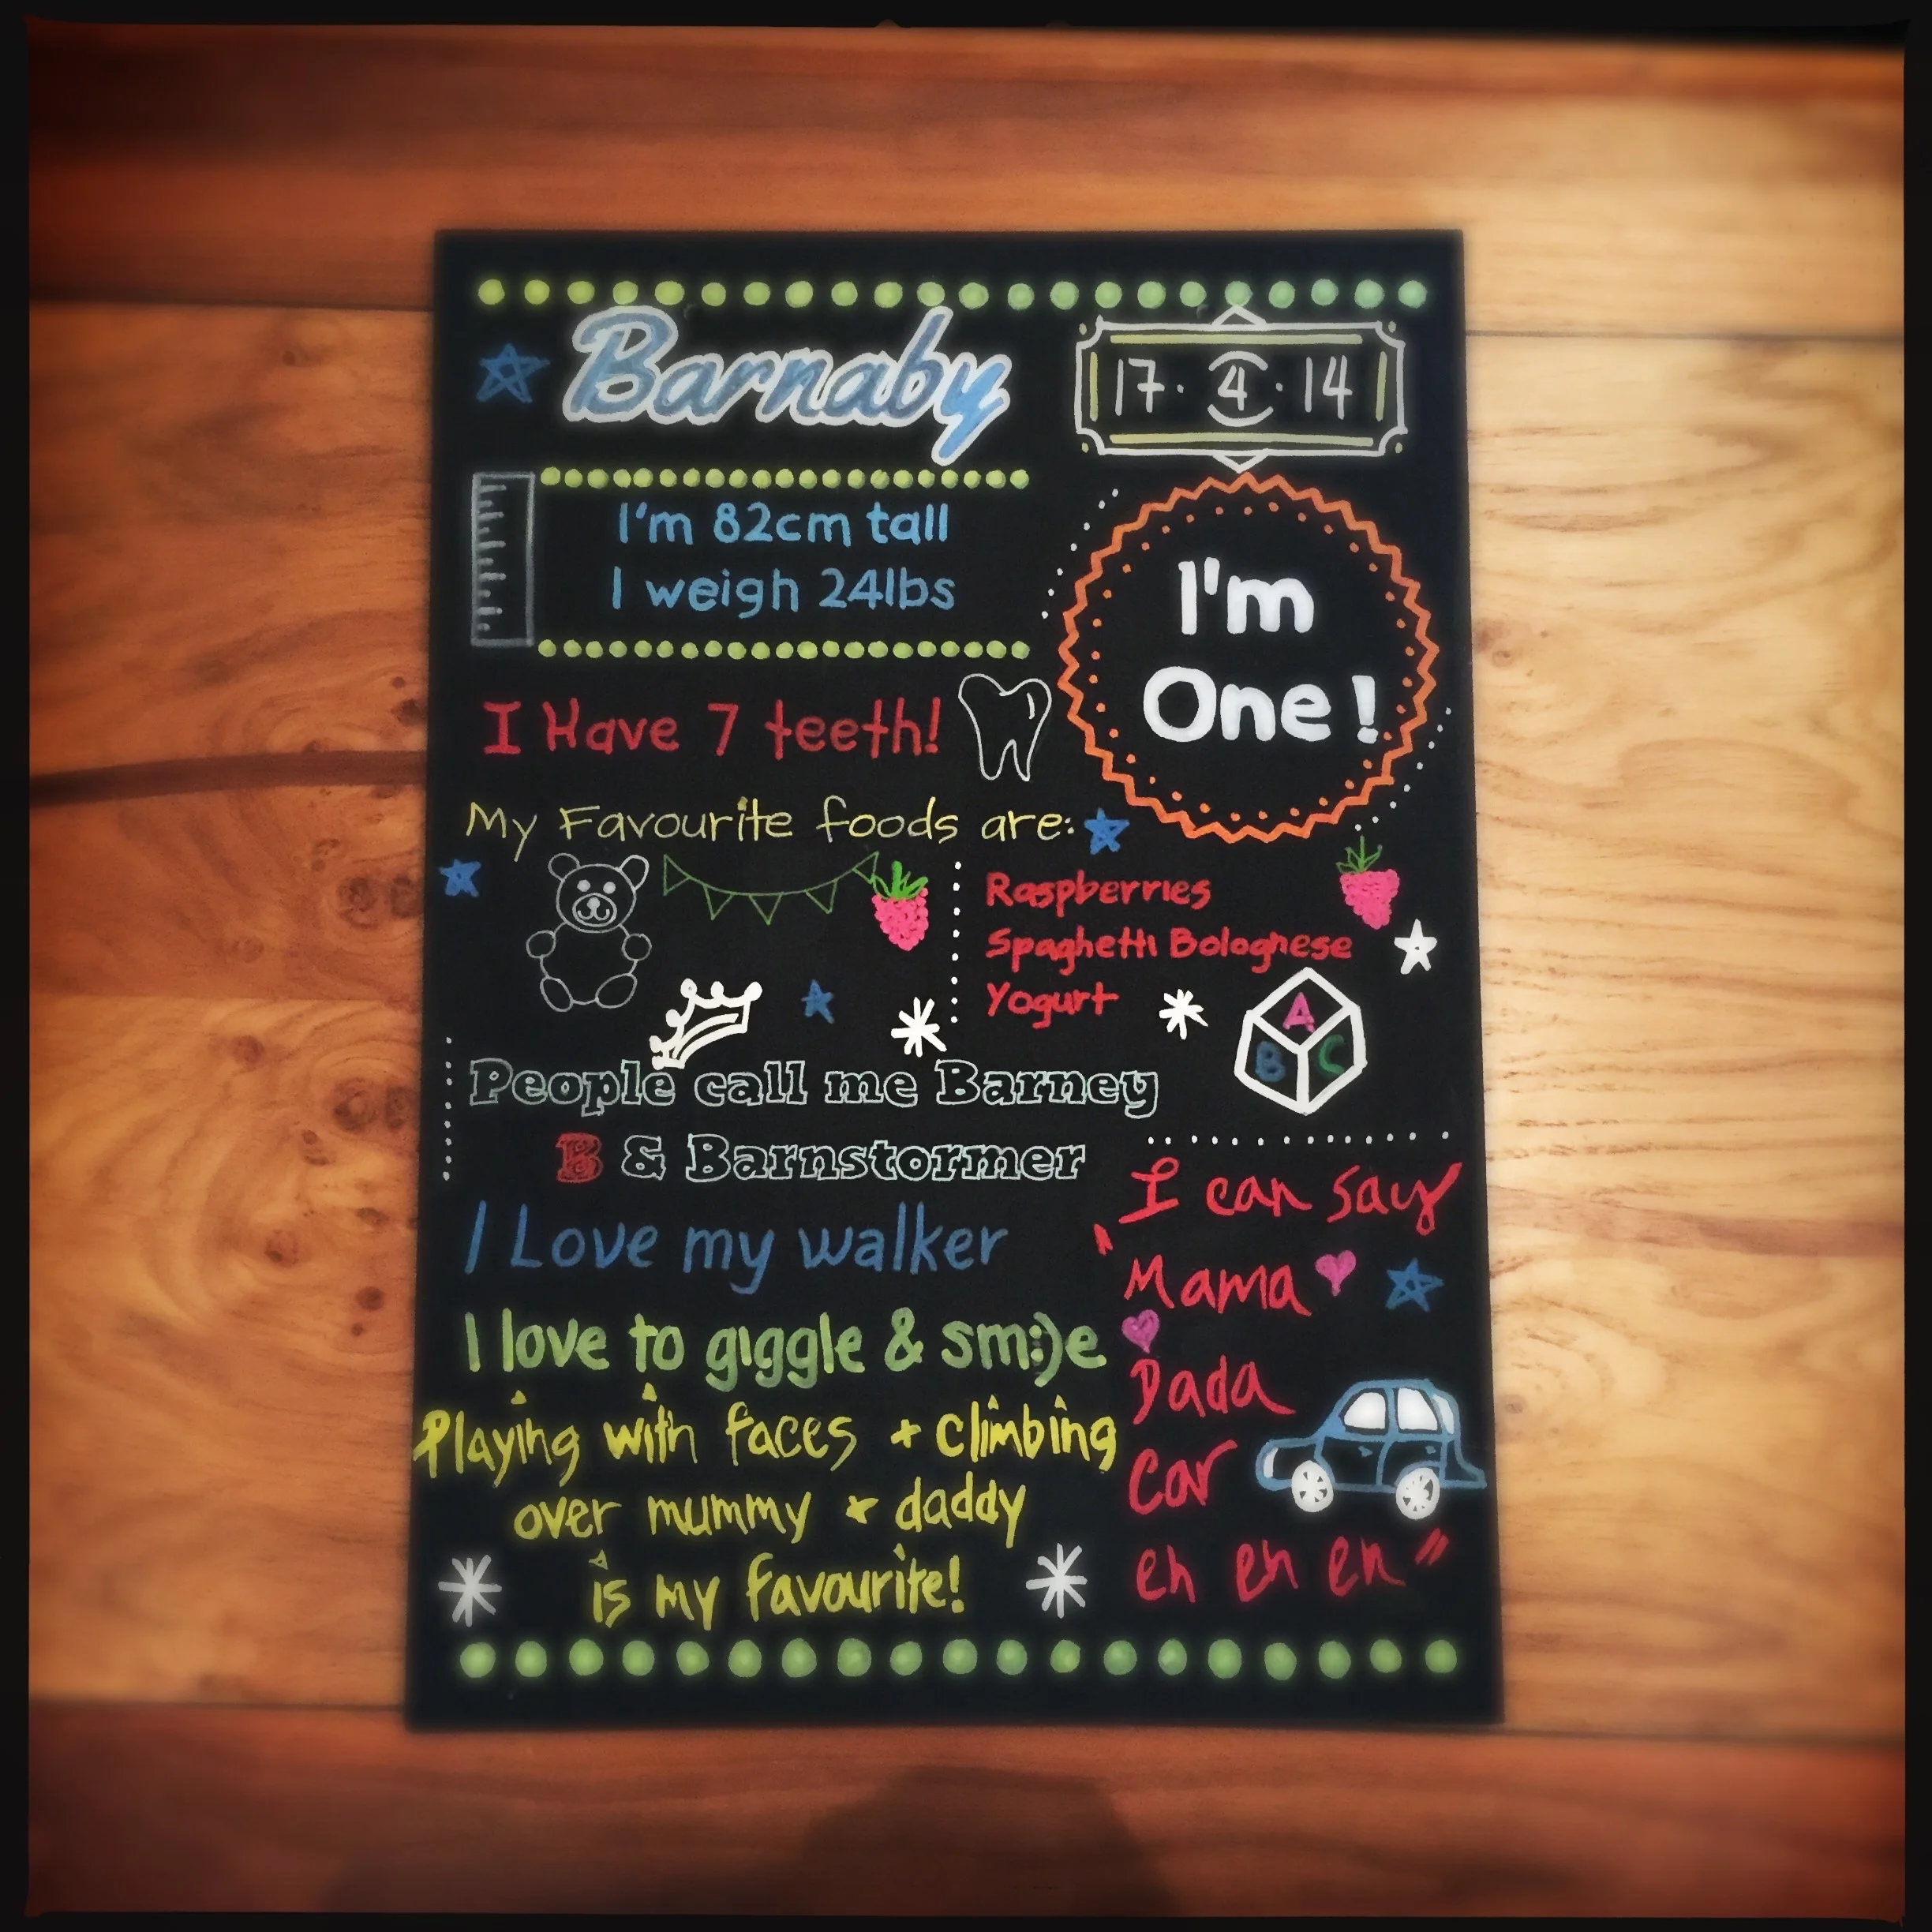 Barnaby
17. 4. 14
I'm 82cm tall
I weigh 24lbs
I'm
One!
I Have 7 teeth!
My Favourite foods are:
Raspberries
Spaghetti Bolognese
Yogurt
A
B C
People call me Barney
B & Barnstormer
I Love my walker
I love to giggle & sm:)e
Playing with faces + climbing
over mummy + daddy
is my favourite!
I can say
" Mama
Dada
Car
eh eh eh "